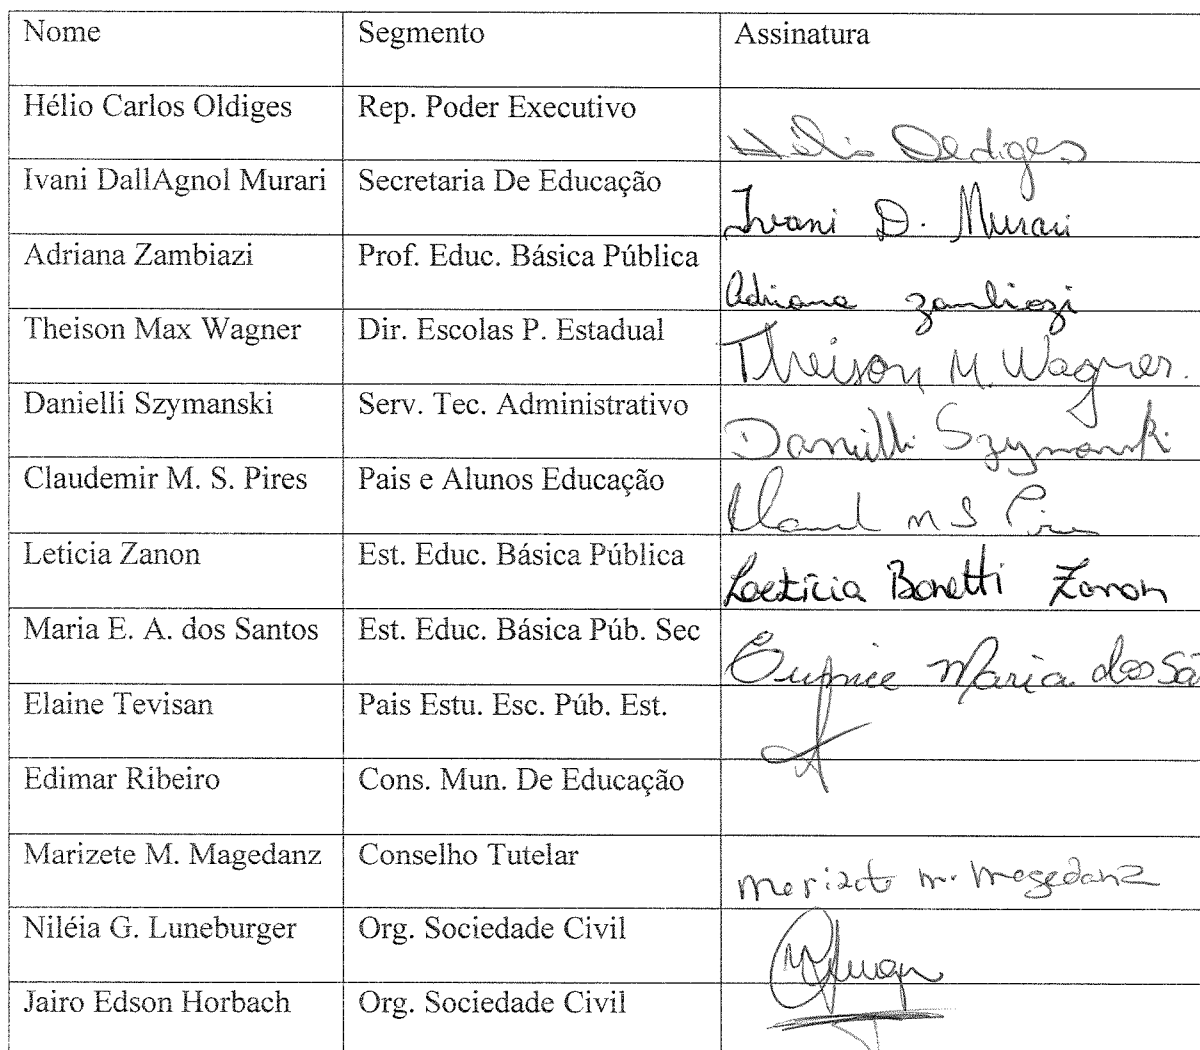 Nome Segmento Assinatura
Hélio Carlos Oldiges Rep. Poder Executivo Hélio Oldiges
Ivani DallAgnol Murari Secretaria De Educação Ivani D. Murari
Adriana Zambiazi Prof. Educ. Básica Pública Adriana Zambiazi
Theison Max Wagner Dir. Escolas P. Estadual Theison M. Wagner.
Danielli Szymanski Serv. Tec. Administrativo Danielli Szymanski
Claudemir M. S. Pires Pais e Alunos Educação M S Pires
Leticia Zanon Est. Educ. Básica Pública Laetícia Bonetti Zanon
Maria E. A. dos Santos Est. Educ. Básica Púb. Sec Maria dos Sa
Elaine Tevisan Pais Estu. Esc. Púb. Est.
Edimar Ribeiro Cons. Mun. De Educação
Marizete M. Magedanz Conselho Tutelar Marizete M. Magedanz
Niléia G. Luneburger Org. Sociedade Civil
Jairo Edson Horbach Org. Sociedade Civil